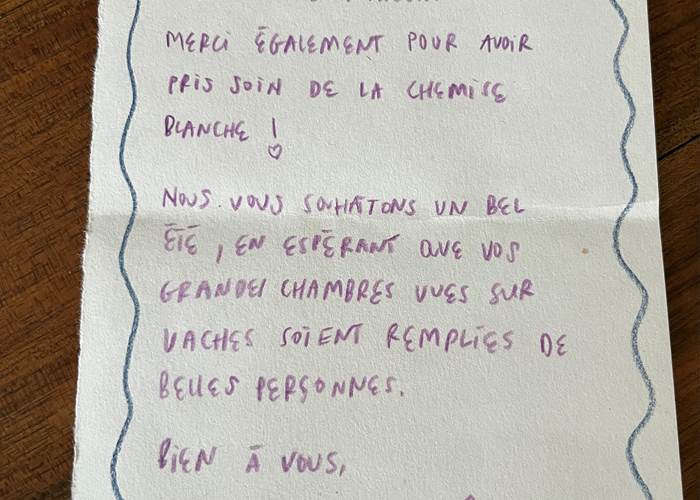 MERCI ÉGALEMENT POUR AVOIR
PRIS SOIN DE LA CHEMISE
BLANCHE !
NOUS VOUS SOUHAITONS UN BEL
ÉTÉ, EN ESPÉRANT QUE VOS
GRANDES CHAMBRES VUES SUR
VACHES SOIENT REMPLIES DE
BELLES PERSONNES.
BIEN À VOUS,